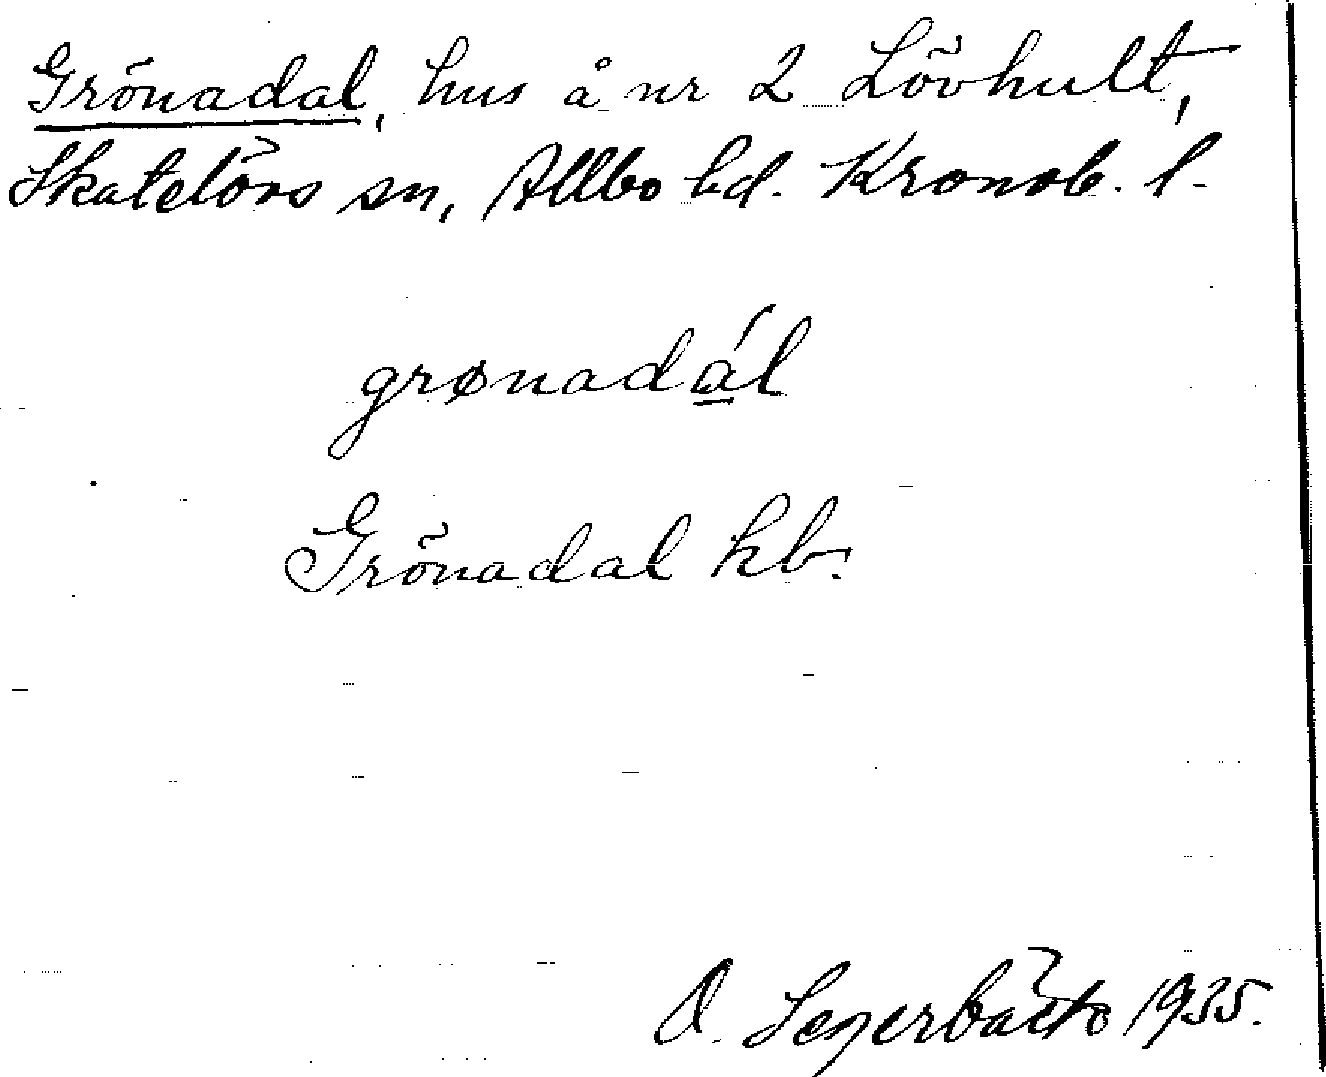 Grönadal, hus å nr 2 Lövhult,
Skatelövs sn, Allbo hd. Kronob. l.
grønadál
Grönadal kb.
O. Segerbäck 1935.